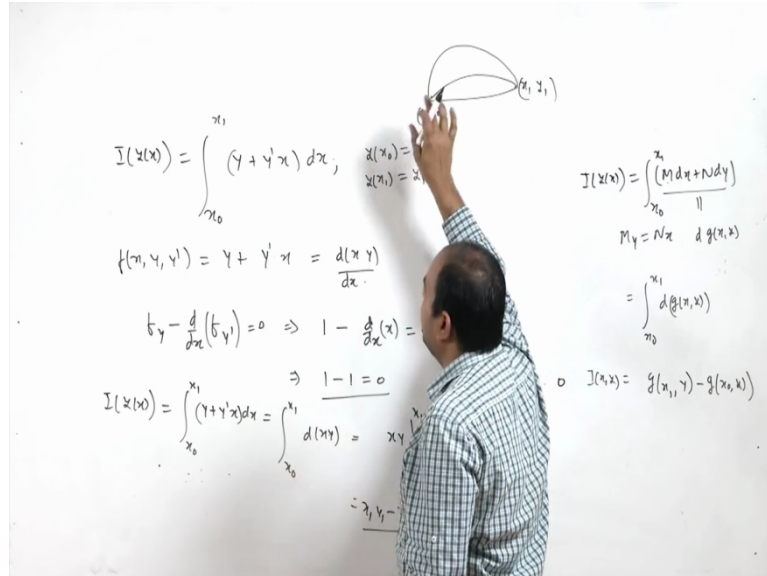 (x₁ y₁)
I(y(x)) = ∫_{x₀}^{x₁} (y + y'x) dx; y(x₀) =
y(x₁) = y₁
f(x, y, y') = y + y' x = d(x y)/dx.
f_y - d/dx (f_y') = 0 ⇒ 1 - d/dx (x) =
⇒ 1 - 1 = 0
I(y(x)) = ∫_{x₀}^{x₁} (y + y'x)dx = ∫_{x₀}^{x₁} d(xy) = xy |^{x₁}
= x₁ y₁ -
I(y(x)) = ∫_{x₀}^{x₁} (Mdx + Ndy)
||
M_y = N_x d g(x,y)
= ∫_{x₀}^{x₁} d(g(x,y))
0 I(x,y) = g(x₁, y) - g(x₀, y))